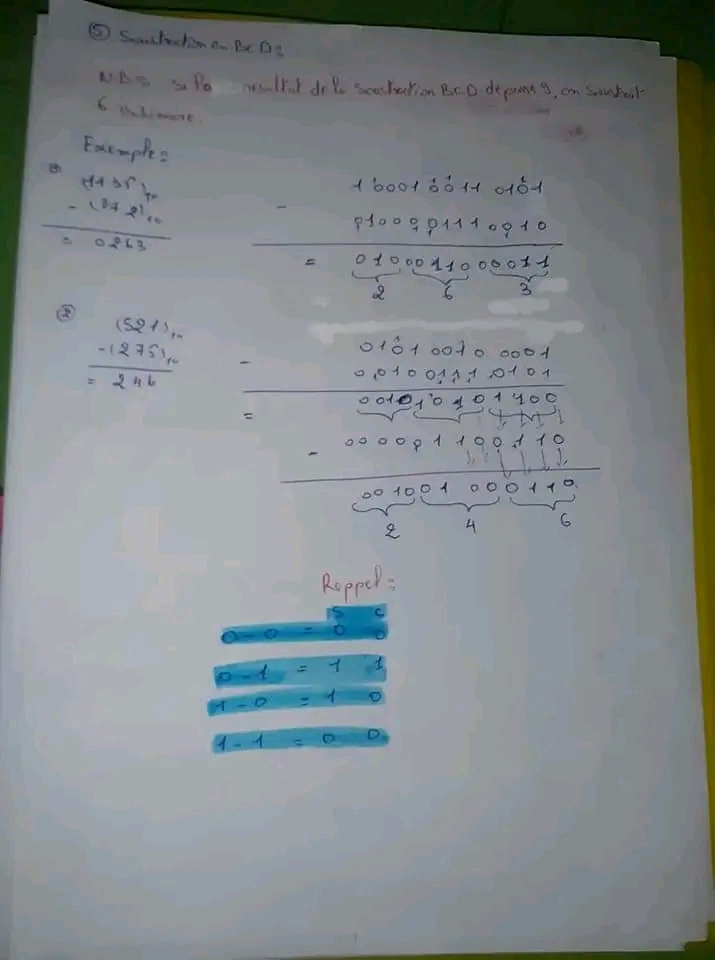 ⑤ Soustraction en BCD:
NB: si le résultat de la soustraction BCD dépasse 9, on soustrait
6
Exemple:
(1135)₁₀
- (872)₁₀
= 0263
1 0001 0011 0101
- 0100 0 0111 0010
= 0100 0110 00011
2 6 3
②
(521)₁₀
- (275)₁₀
= 246
0101 0010 0001
- 0010 0111 0101
= 0010 1010 1100
- 0000 0110 0110
0010 0100 0110
2 4 6
Rappel:
S C
0 - 0 = 0 0
0 - 1 = 1 1
1 - 0 = 1 0
1 - 1 = 0 0